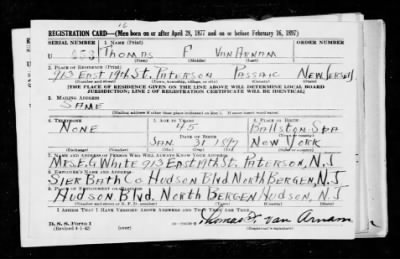 REGISTRATION CARD—(Men born on or after April 28, 1877 and on or before February 16, 1897)
SERIAL NUMBER 1. NAME (Print) ORDER NUMBER
U THOMAS F VAN ARNAM
(First) (Middle) (Last)
2. PLACE OF RESIDENCE (Print)
913 EAST 19th St. PATERSON PASSAIC NEW JERSEY
(Number and street) (Town, township, village, or city) (County) (State)
[THE PLACE OF RESIDENCE GIVEN ON THE LINE ABOVE WILL DETERMINE LOCAL BOARD
JURISDICTION; LINE 2 OF REGISTRATION CERTIFICATE WILL BE IDENTICAL]
3. MAILING ADDRESS
SAME
4. TELEPHONE 5. AGE IN YEARS 6. PLACE OF BIRTH
NONE 45 BALLSTON SPA
DATE OF BIRTH
JAN. 31 1897 NEW YORK
(Exchange) (Number) (Mo.) (Day) (Yr.) (State or country)
7. NAME AND ADDRESS OF PERSON WHO WILL ALWAYS KNOW YOUR ADDRESS
MRS E. G. WHITE 913 EAST 19th ST. PATERSON, N.J
8. EMPLOYER'S NAME AND ADDRESS
SIER BATH CO HUDSON BLVD NORTH BERGEN, N.J
9. PLACE OF EMPLOYMENT OR BUSINESS
HUDSON BLVD. NORTH BERGEN HUDSON, N.J
(Number and street or R. F. D. number) (Town) (County) (State)
I AFFIRM THAT I HAVE VERIFIED ABOVE ANSWERS AND THAT THEY ARE TRUE.
D. S. S. Form 1
(Revised 4-1-42) Thomas F. Van Arnam